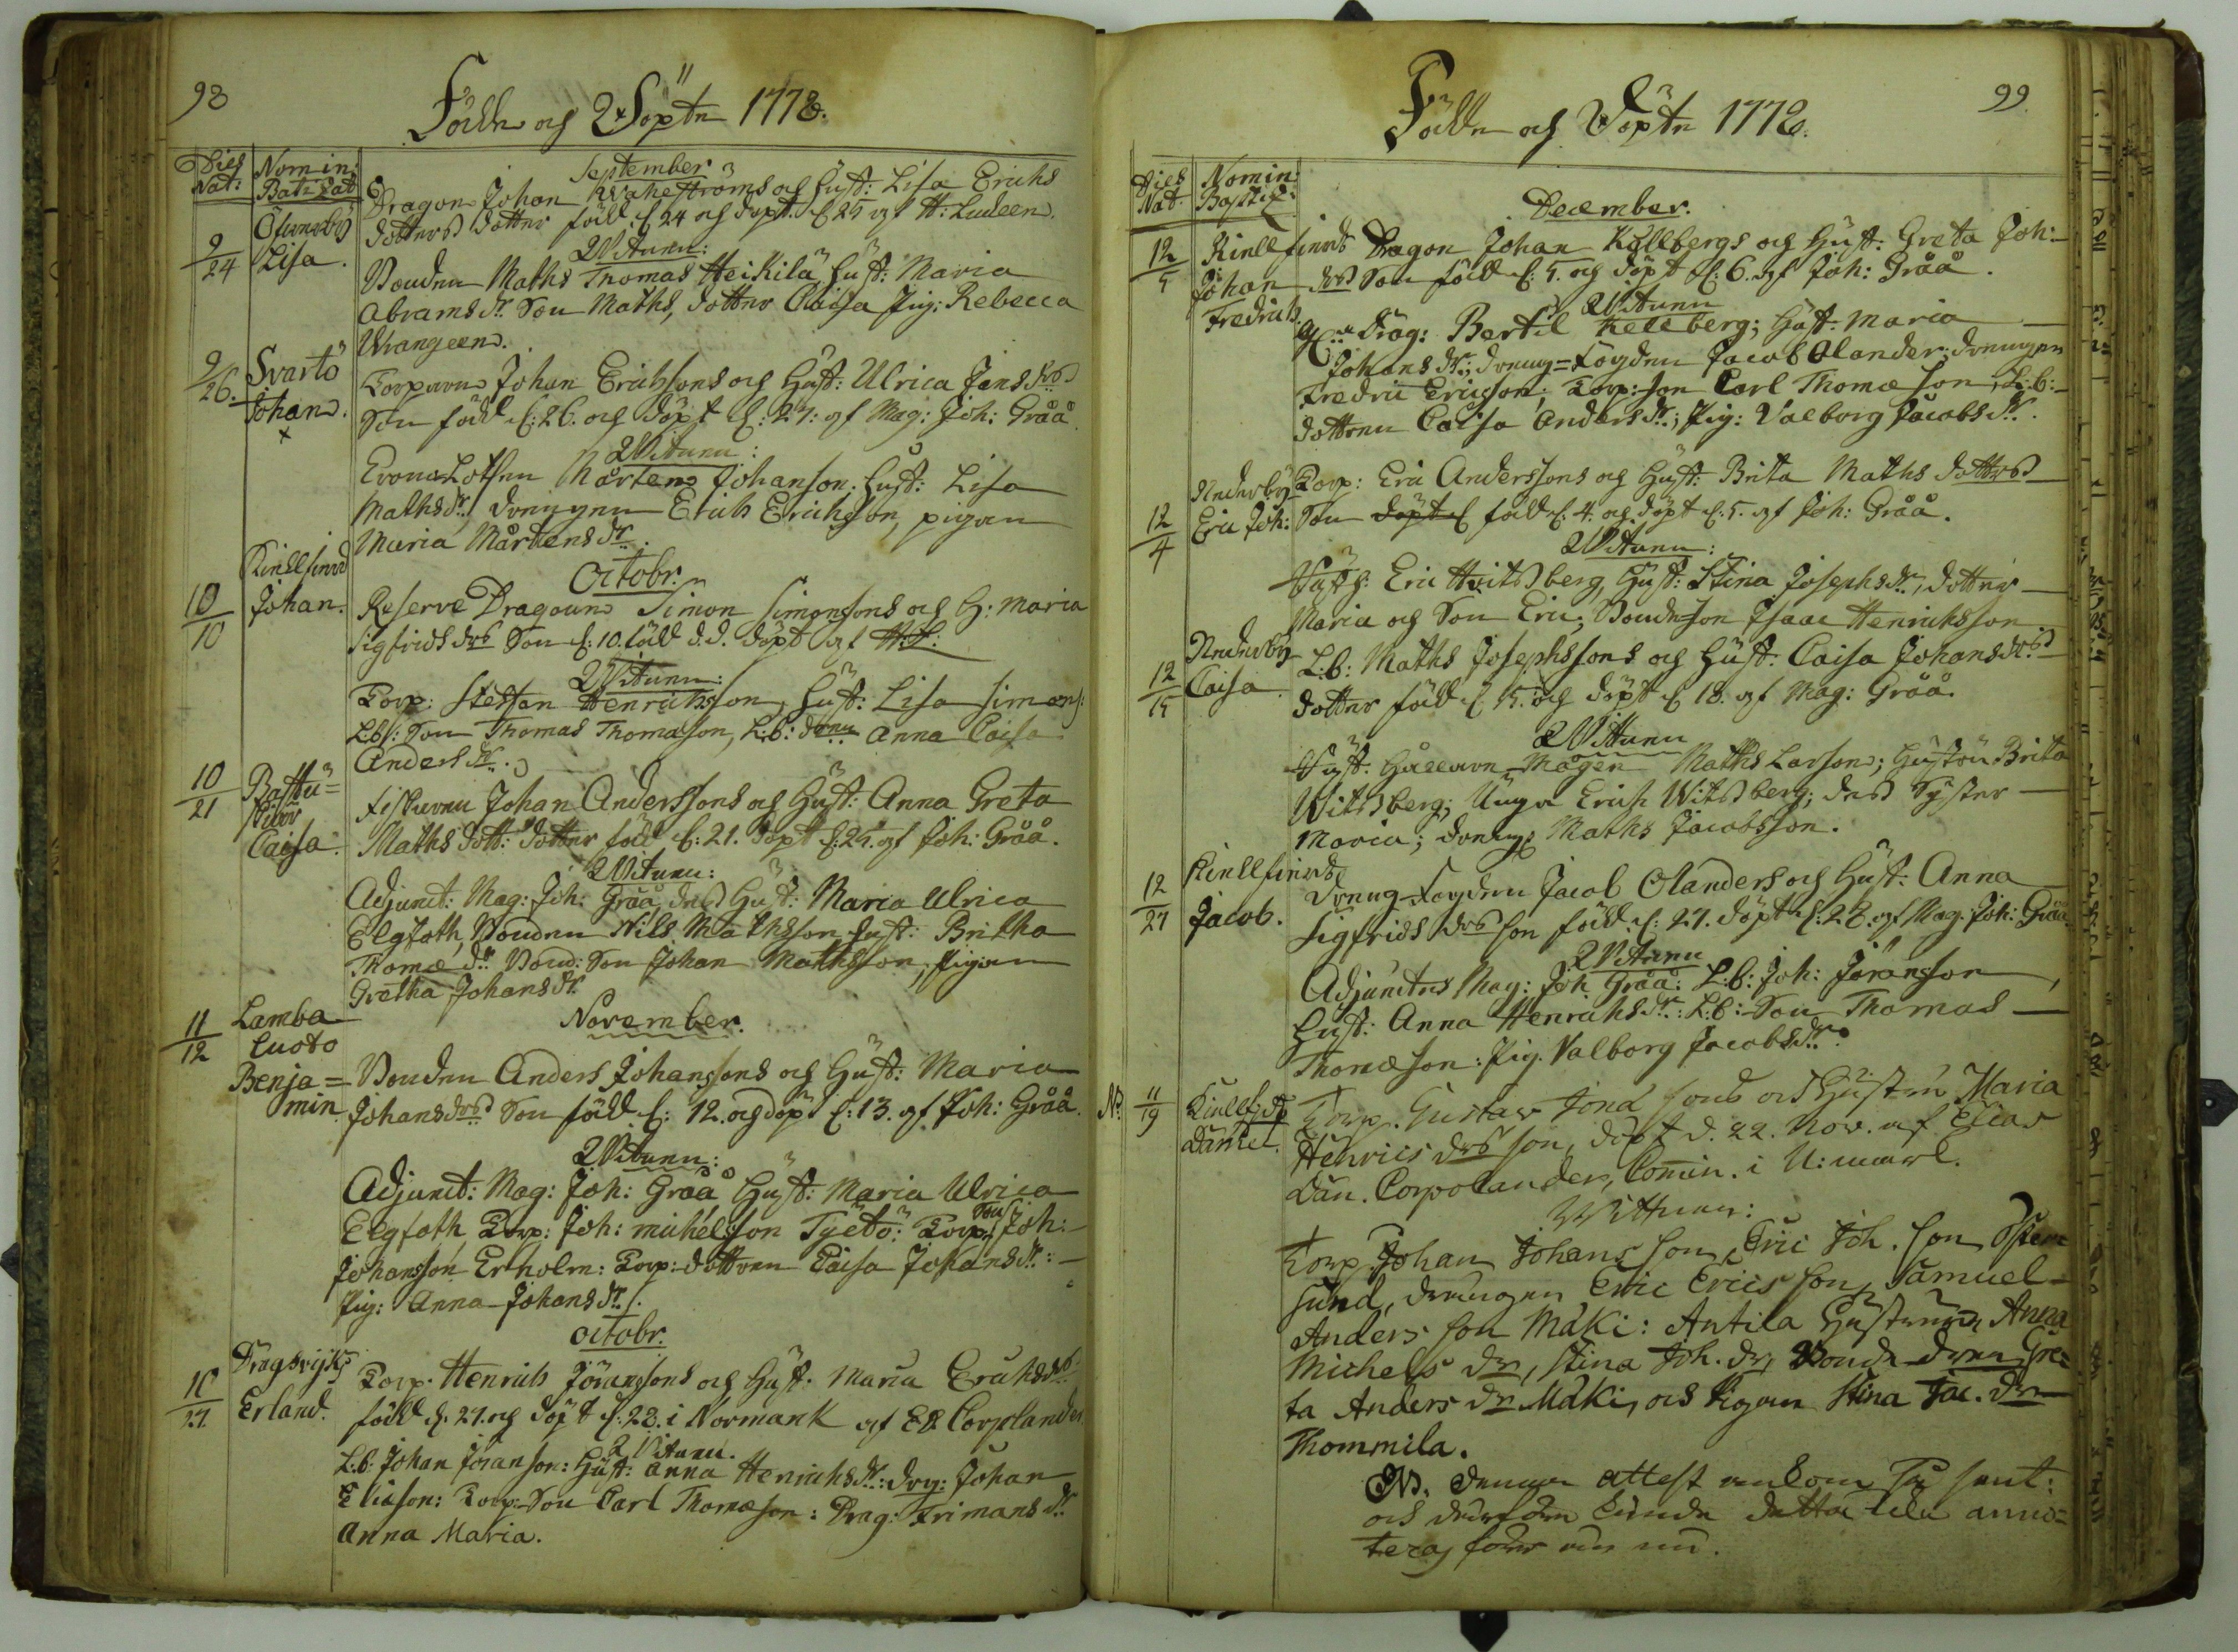 98
Födde og Döpte 1778.
Dies Nat:
Nomin: Baptizat
September
Öfwerby
9/24 Lisa.
Dragon Johan Wahlströms og Hust: Lisa Erichs
dotters dotter född d. 24 og döpt d. 25 af H: Ludeen.
Witnen:
Bonden Maths Thomas Heikilä Hust: Maria
Abrams dr. Son Maths, dotter Caisa Pig: Rebecca
Wrangeen.
9/26. Svartö
Johan.
Torparen Johan Erichssons og Hust: Ulrica Jans drs
Son född d: 26. og döpt d: 27: af Mag: Joh: Gråå
Witnen:
Lotsen Mårten Johanson, Hust: Lisa
Maths dr. drengen Erich Erichsson, pigan
Maria Mårtens dr.
Octobr.
10/10 Johan.
Reserve Dragoun Simon Simonssons og H: Maria
Sigfrids drs Son d: 10. född d.d. döpt af
Witnen:
Torp: Steffan Henrichsson, Hust: Lisa Simons:
L:b: Son Thomas Thomason, L:b: Anna Caisa
Anders dr.
10/21
Caisa.
Fiskaren Johan Anderssons og Hust: Anna Greta
Maths dott: dotter född d: 21. döpt d: 25. af Joh: Gråå.
Witnen:
Adjunct: Mag: Joh: Gråå, des Hust: Maria Ulrica
Elgfoth, Bonden Nils Mathsson Hust: Britha
Thomæ dr. Bond: Son Johan Mathsson, Pigan
Gretha Johans dr.
November.
11/12 Lamba
Luoto
Benja=
min
Bonden Anders Johanssons og Hust: Maria
Johans drs Son född d: 12. og döpt d: 13. af Joh: Gråå.
Witnen:
Adjunct: Mag: Joh: Gråå Hust: Maria Ulrica
Elgfoth Torp: Joh: Michelsson Tyeto: Torp: Son Joh:
Johansson Erholm: Torp: dottren Caisa Johans dr.:
Pig: Anna Johans dr.
octobr.
10/27. Dragsvijk
Erland.
Torp: Henrich Jöranssons og Hust. Maria Erichs drs
född d. 27. og döpt d. 28. i Normark af El Corplander
Witnen.
L:b: Johan Jöranson: Hust: Anna Henrichs dr: drg: Johan
Eliæson: Torp: Son Carl Thomæson: Drag: Frimans dr.
Anna Maria.
Födde og Döpte 1778.
99
Dies Nat.
Nomin: Baptiz:
December.
12/5 Johan
Fredrich.
Dragon Johan Källbergs og Hust: Greta Joh:
drs Son född d: 5. og döpt d: 6. af Joh: Gråå.
Witnen
Drag: Bertil Kellberg; Hust. Maria
Johans dr; dreng=Fogden Jacob Olander; drengen
Fredric Ericson; Torp: son Carl Thomæson, L:b:
dottren Caisa Anders dr.; Pig: Valborg Jacobs dr.
12/4 Nederby
Eric Joh:
Torp: Eric Anderssons og Hust: Brita Maths dotters
Son döpt d född d. 4. og döpt d. 5. af Joh: Gråå.
Witnen:
Eric Hvitsberg, Hust: Stina Josephs dr, dotter
Maria og Son Eric; Bondeson Isaac Henrichsson.
12/15 Nederby
Caisa.
L:b: Maths Josephssons og Hust: Caisa Johans drs
dotter född d. 15. og döpt d 18. af Mag: Gråå.
Witnen
Mågen Maths Larson; Hustru Brita
Witsberg; Unga Erich Witsberg; des Syster
Maria; dreng: Maths Jacobsson.
12/27 Jacob.
Dreng-Fogden Jacob Olanders og Hust: Anna
Sigfrids drs son född d: 27. döpt d: 28. af Mag. Joh: Gråå
Witnen
Adjunctus Mag: Joh Gråå: L:b: Joh: Jöransson,
Hust: Anna Henrichs dr.: L:b: Son Thomas
Thomæson: Pig. Valborg Jacobs dr.
11/19
Daniel.
Torp. Gustav Jönd sons och Hustru Maria
Henrics drs son, döpt d. 22. Nov. af Elias
Dan. Corpolander, Comin. i
Wittnen:
Torp. Johan Johans son, Eric Joh. son Öster
sund, drengen Eric Erics son, Samuel
Anders son Mäki: Antila Hustrun Anna
Michels dr, Stina Joh. dr, Gre=
ta Anders dr Mäki, och Pigan Stina Jac. dr
Thommila.
NB. denna attest ankom för sent:
och derföre kunde detta icke anno=
teras förr än nu.